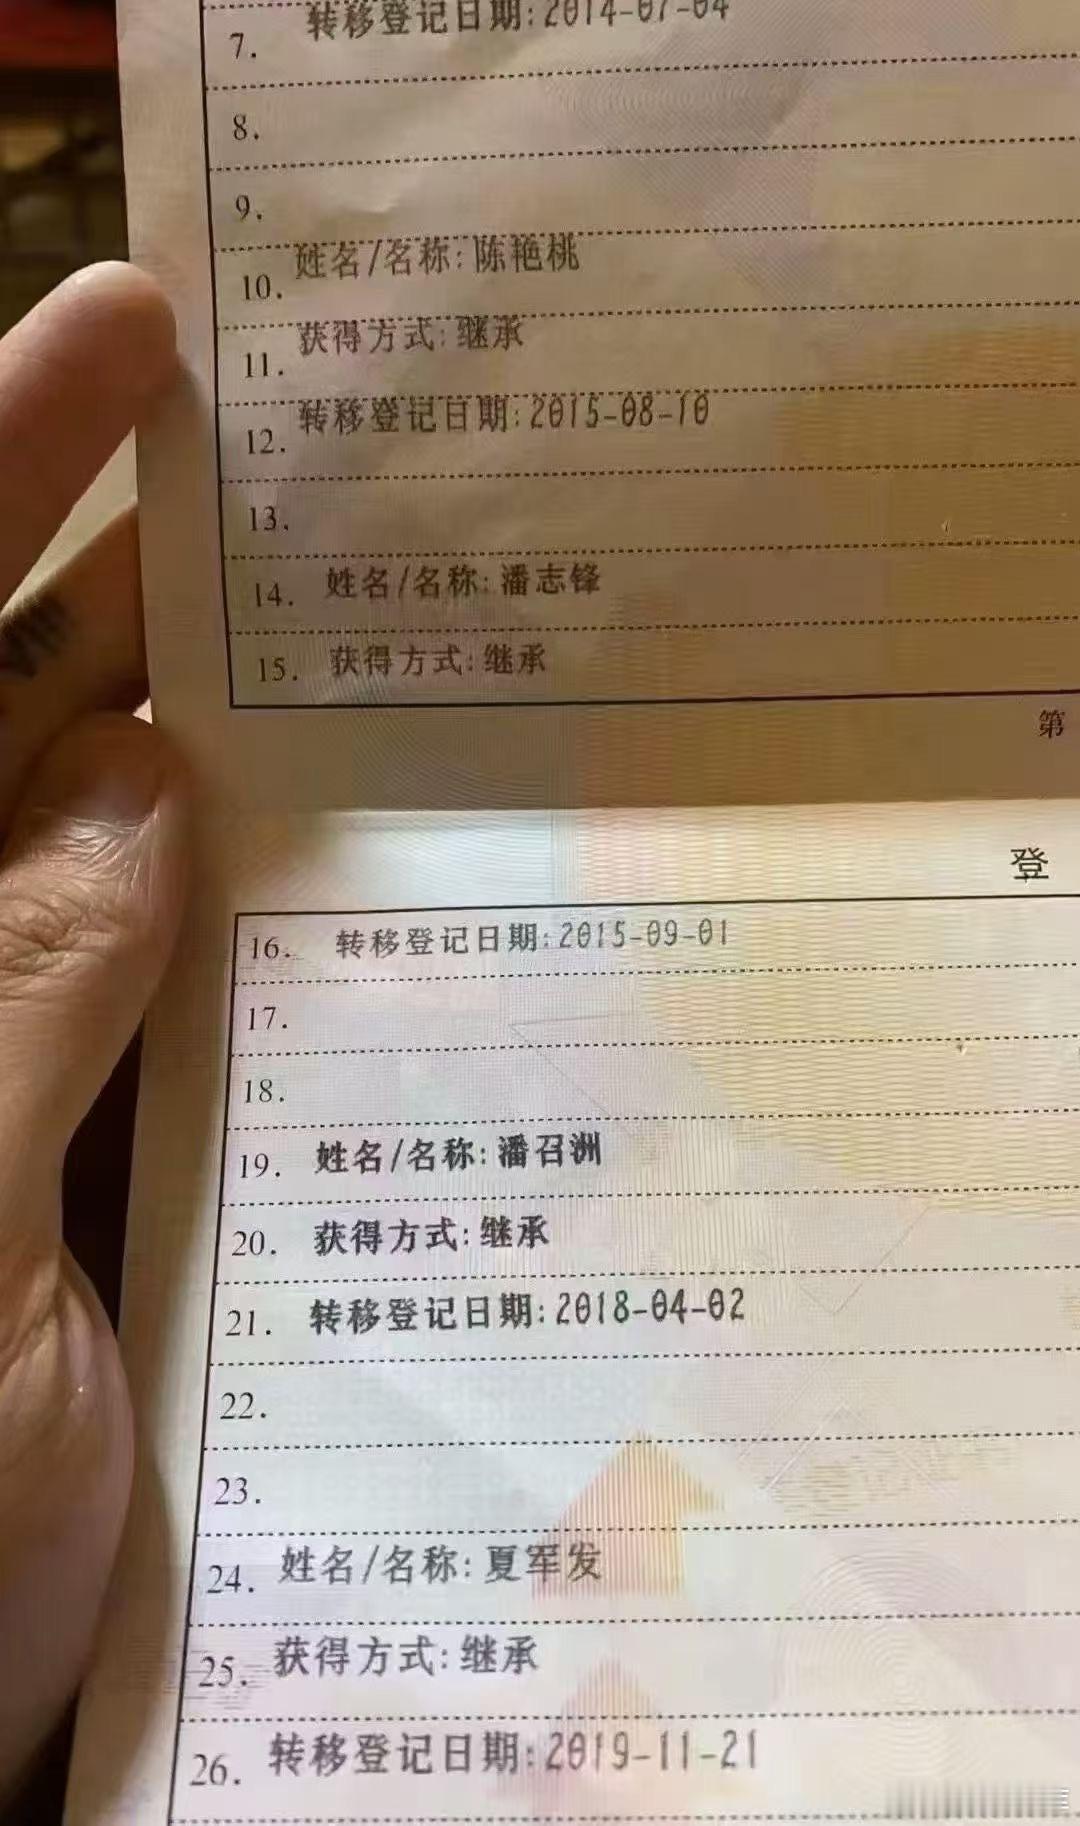 7. 转移登记日期:2014-07-04
8.
9.
10. 姓名/名称:陈艳桃
11. 获得方式:继承
12. 转移登记日期:2015-08-10
13.
14. 姓名/名称:潘志锋
15. 获得方式:继承
第
登
16. 转移登记日期:2015-09-01
17.
18.
19. 姓名/名称:潘召洲
20. 获得方式:继承
21. 转移登记日期:2018-04-02
22.
23.
24. 姓名/名称:夏军发
25. 获得方式:继承
26. 转移登记日期:2019-11-21